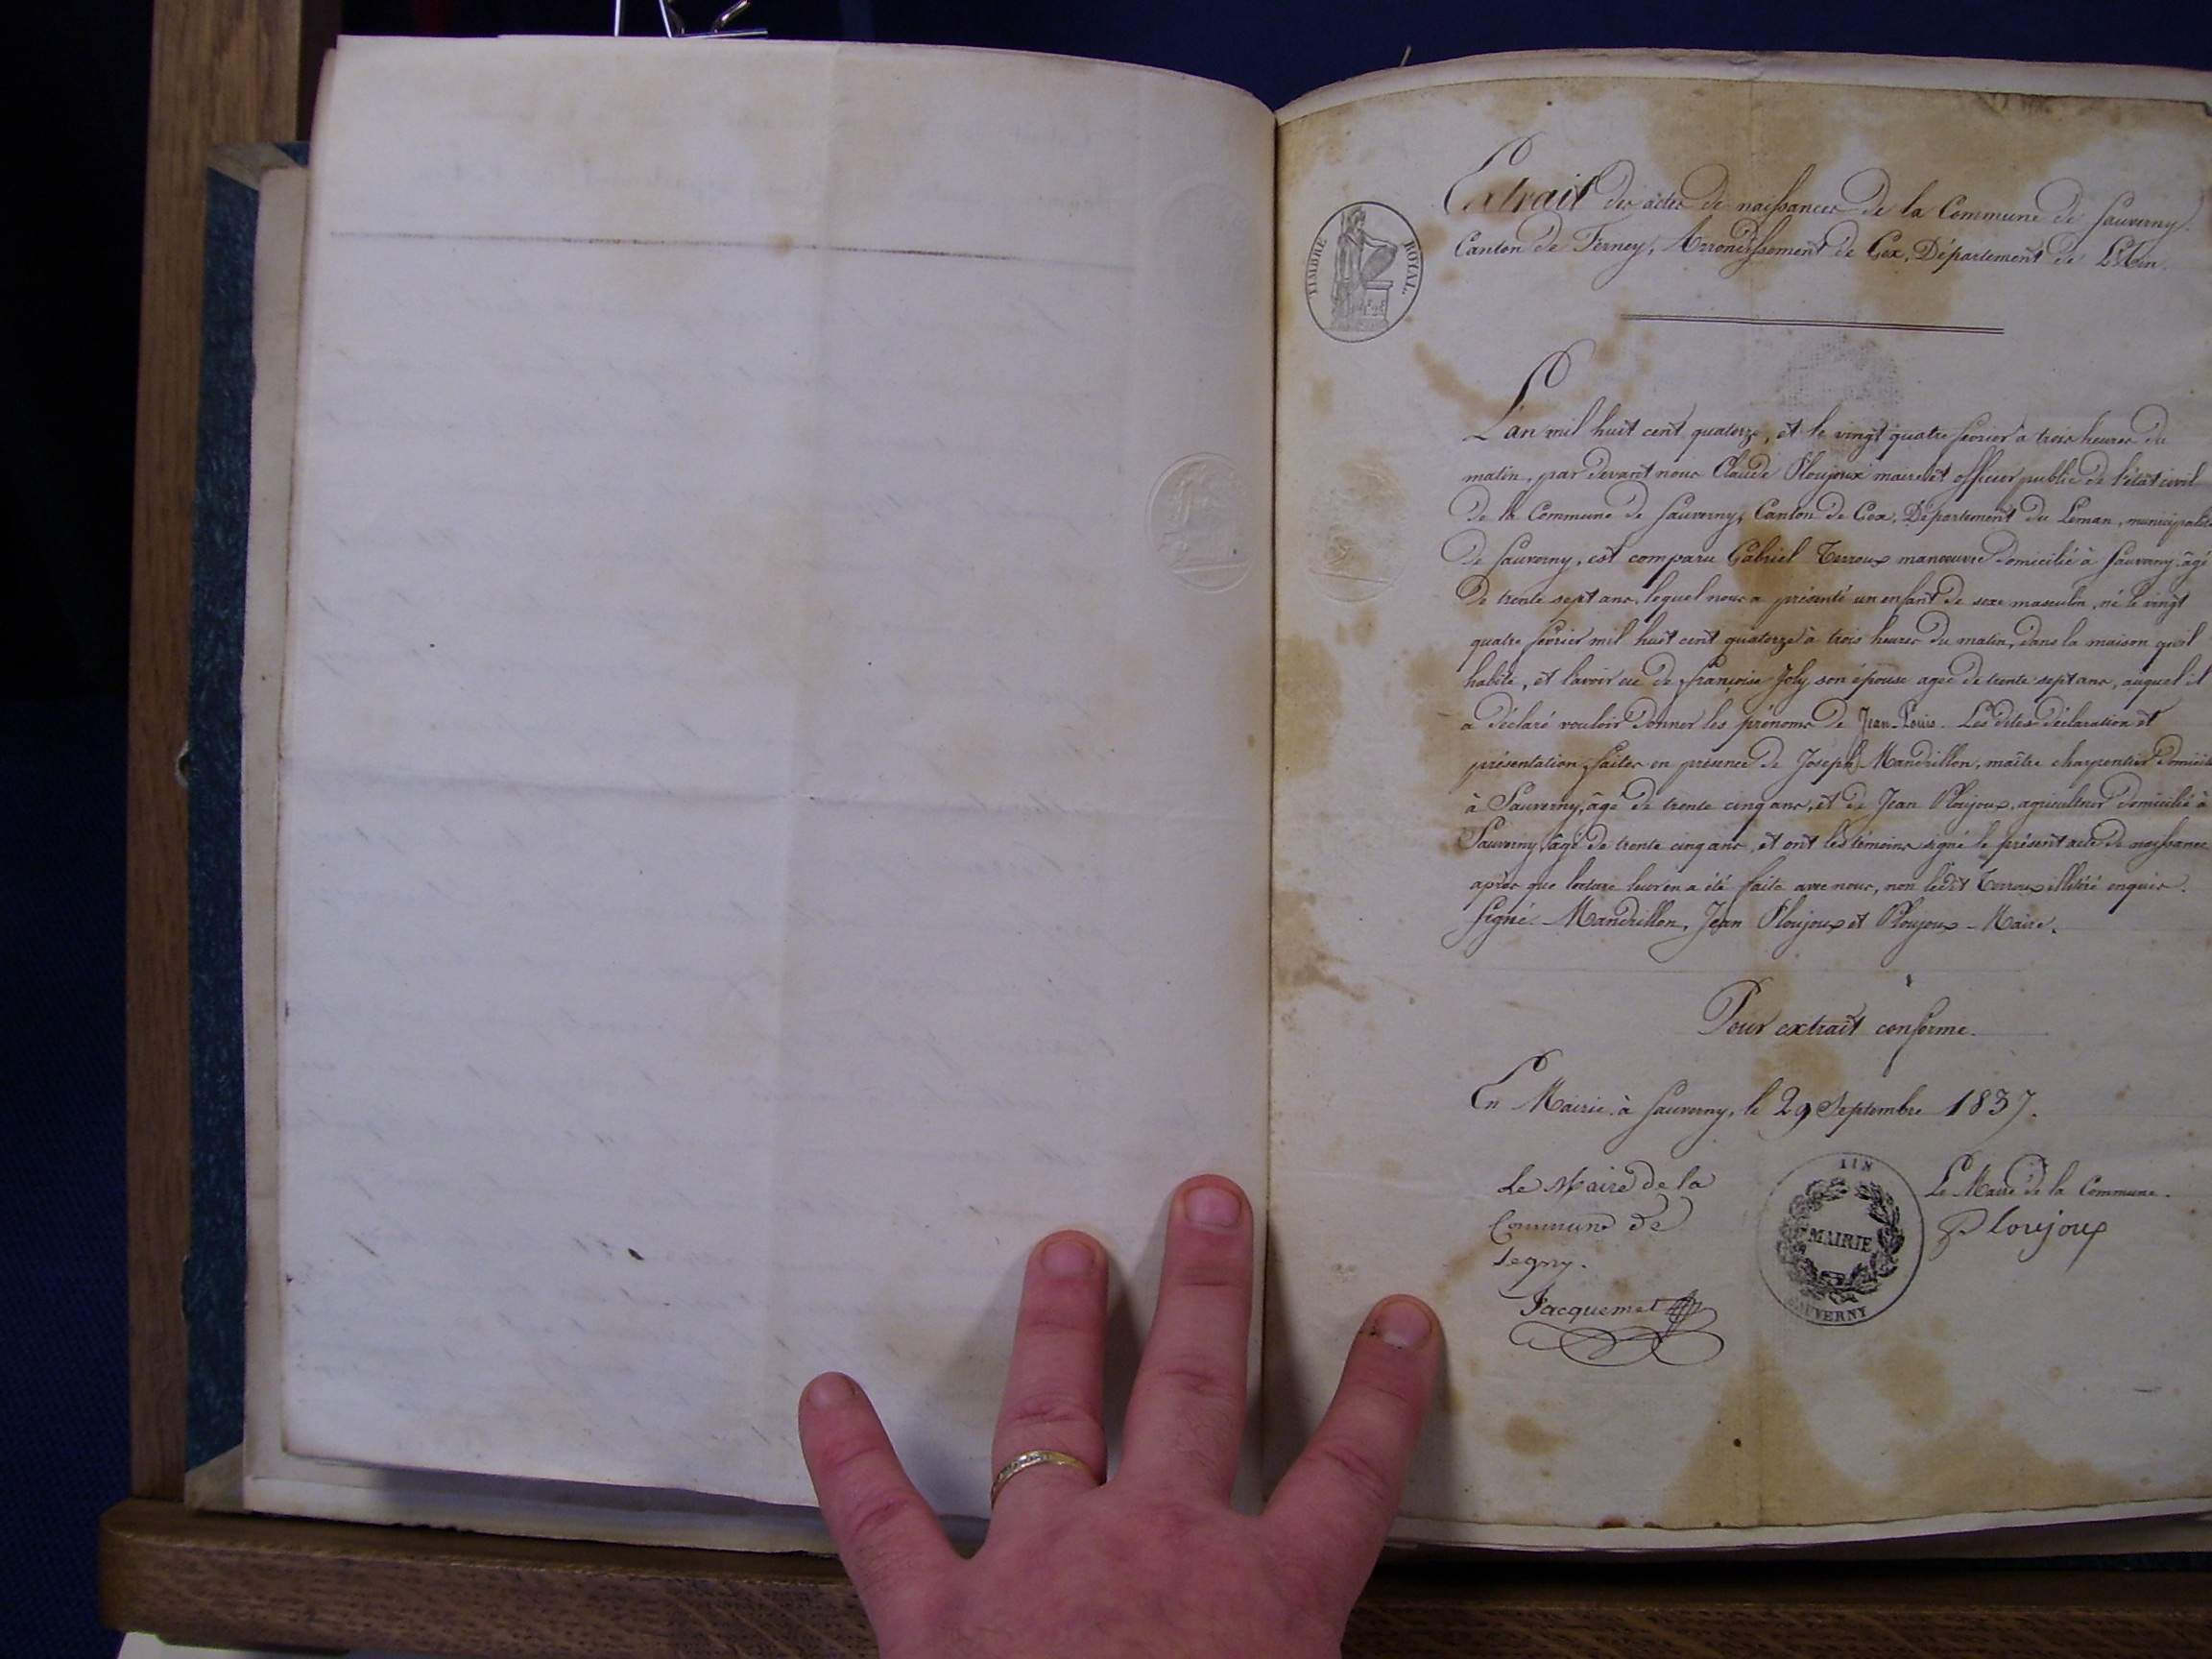 Extrait des actes de naissances de la Commune de Sauverny.
Canton de Ferney, Arrondissement de Gex, Département de L'Ain.
TIMBRE ROYAL.
L'an mil huit cent quatorze, et le vingt quatre fevrier à trois heures du
matin, par devant nous Claude Ploujoux maire et officier public de l'état civil
de la Commune de Sauverny, Canton de Gex, Département du Leman, municipalité
de Sauverny, est comparu Gabriel Terroux manoeuvre domicilié à Sauverny, âgé
de trente sept ans, lequel nous a présenté un enfant de sexe masculin, né le vingt
quatre fevrier mil huit cent quatorze à trois heures du matin, dans la maison qu'il
habite, et l'avoir eu de françoise Joly son épouse agée de trente sept ans, auquel il
a déclaré vouloir donner les prénoms de Jean-Louis. Les dites déclaration et
présentation faites en présence de Joseph Mandrillon, maître charpentier domicilié
à Sauverny, âgé de trente cinq ans, et de Jean Ploujoux, agriculteur domicilié à
Sauverny, âgé de trente cinq ans, et ont les témoins signé le présent acte de naissance
après que lecture leur en a été faite avec nous, non ledit Terroux illitéré enquis.
Signé Mandrillon, Jean Ploujoux et Ploujoux - Maire.
Pour extrait conforme.
En Mairie à Sauverny, le 29 Septembre 1837.
Le Maire de la
Commune de
Segny.
Jacquemet
AIN
MAIRIE
SAUVERNY
Le Maire de la Commune.
Ploujoux